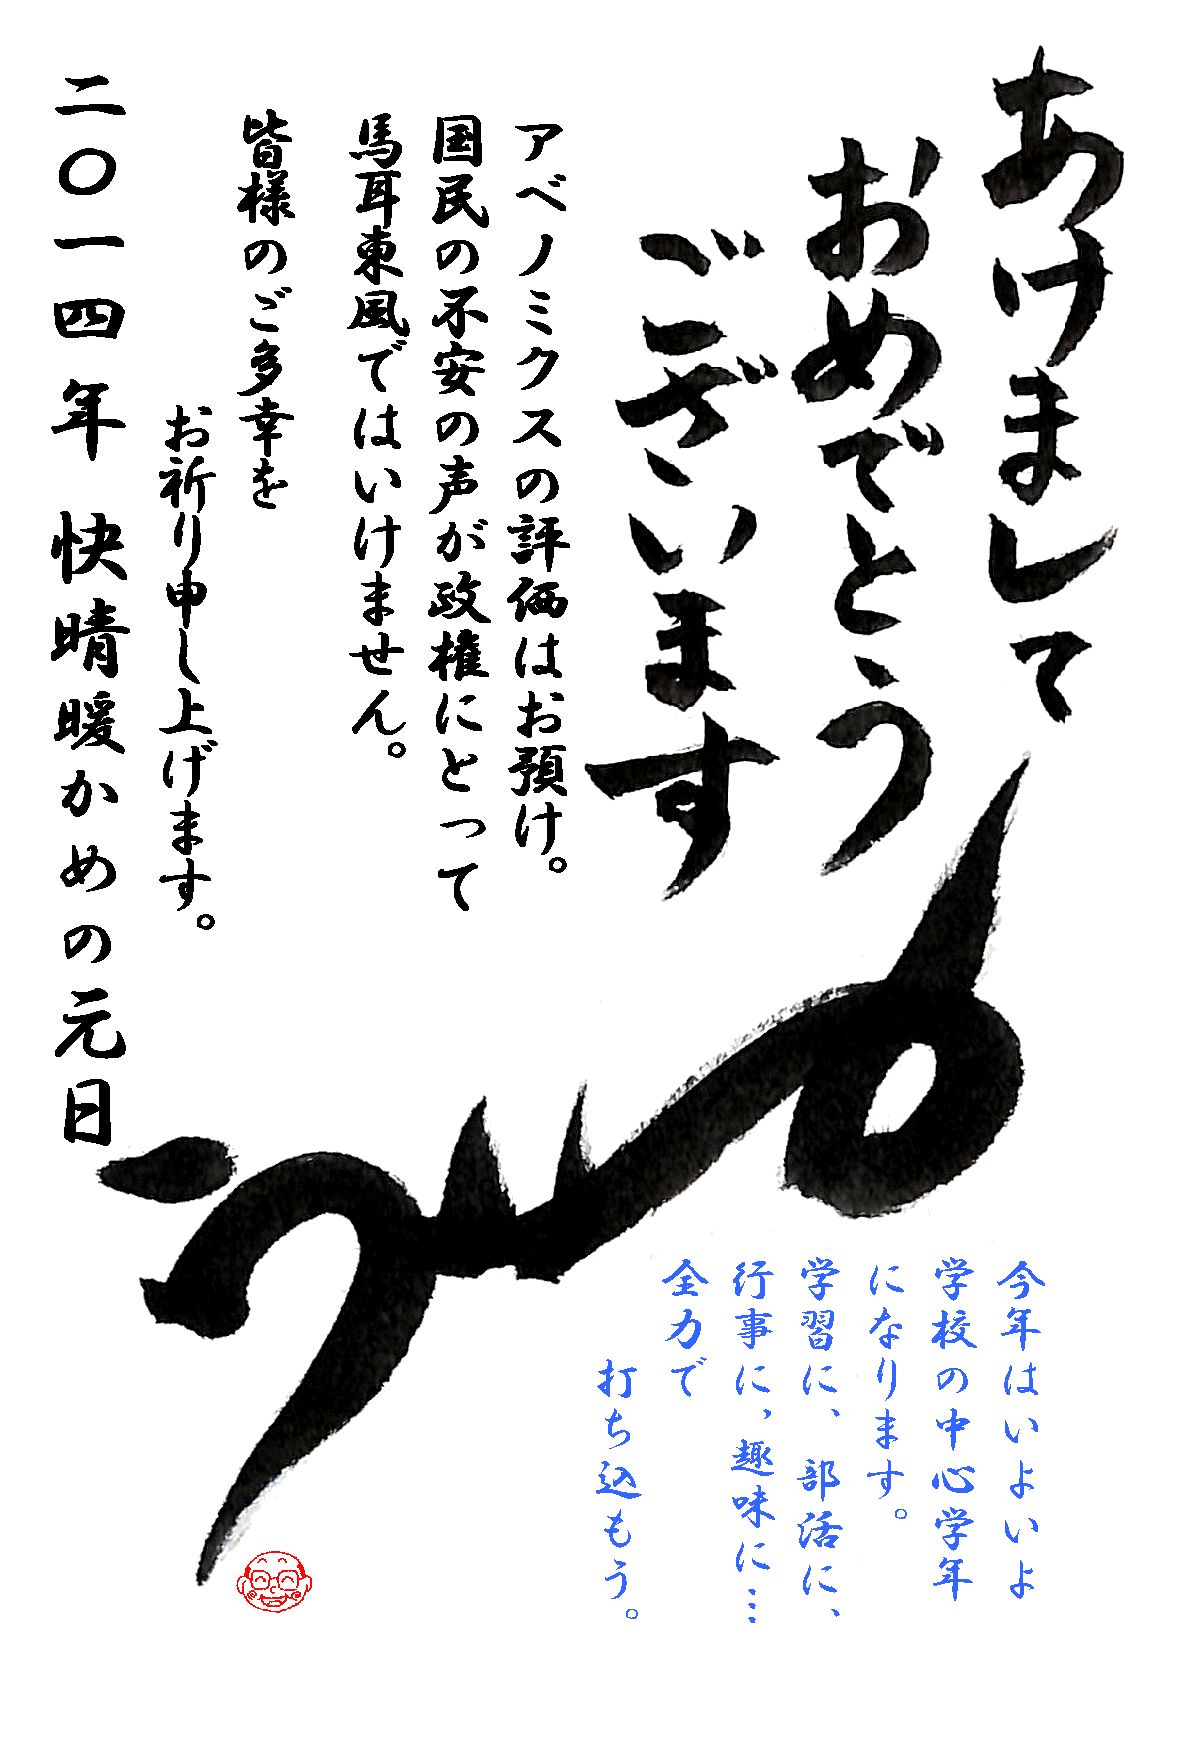 あけまして
おめでとう
ございます
アベノミクスの評価はお預け。
国民の不安の声が政権にとって
馬耳東風ではいけません。
皆様のご多幸を
お祈り申し上げます。
二〇一四年 快晴暖かめの元日
今年はいよいよ
学校の中心学年
になります。
学習に、部活に、
行事に，趣味に…
全力で
打ち込もう。